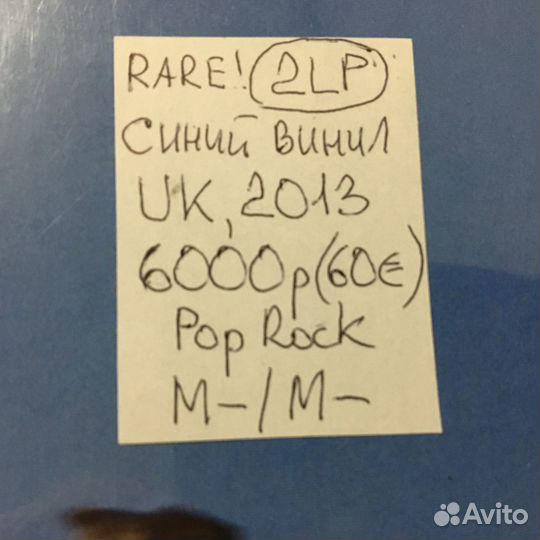 RARE! 2LP
Синий винил
UK, 2013
6000р (60€)
Pop Rock
M-/M-
Avito